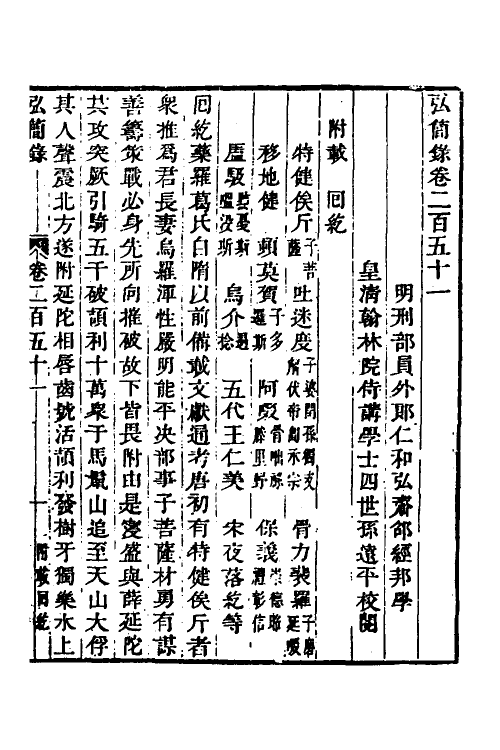 弘簡錄卷二百五十一
明刑部員外郎仁和弘齋邵經邦學
皇淸翰林院侍講學士四世孫遠平校閱
附載 回紇
特健俟斤子菩薩 吐迷度子婆閏孫獨解支伏帝匐承宗 骨力裴羅子磨延啜
移地健 頓莫賀子多羅斯 阿啜骨咄祿 保義崇德昭禮彰信
盧馺 烏介 五代王仁美 宋夜落紇等
回紇藥羅葛氏自隋以前備載文獻通考唐初有特健俟斤者
衆推爲君長妻烏羅渾性嚴明能平决部事子菩薩材勇有謀
善籌策戰必身先所向摧破故下皆畏附由是寖盛與薛延陀
共攻突厥引騎五千破頡利十萬衆于馬鬣山追至天山大俘
其人聲震北方遂附延陀相唇齒號活頡利發樹牙獨樂水上
弘簡錄 卷二百五十一 一 附載回紇